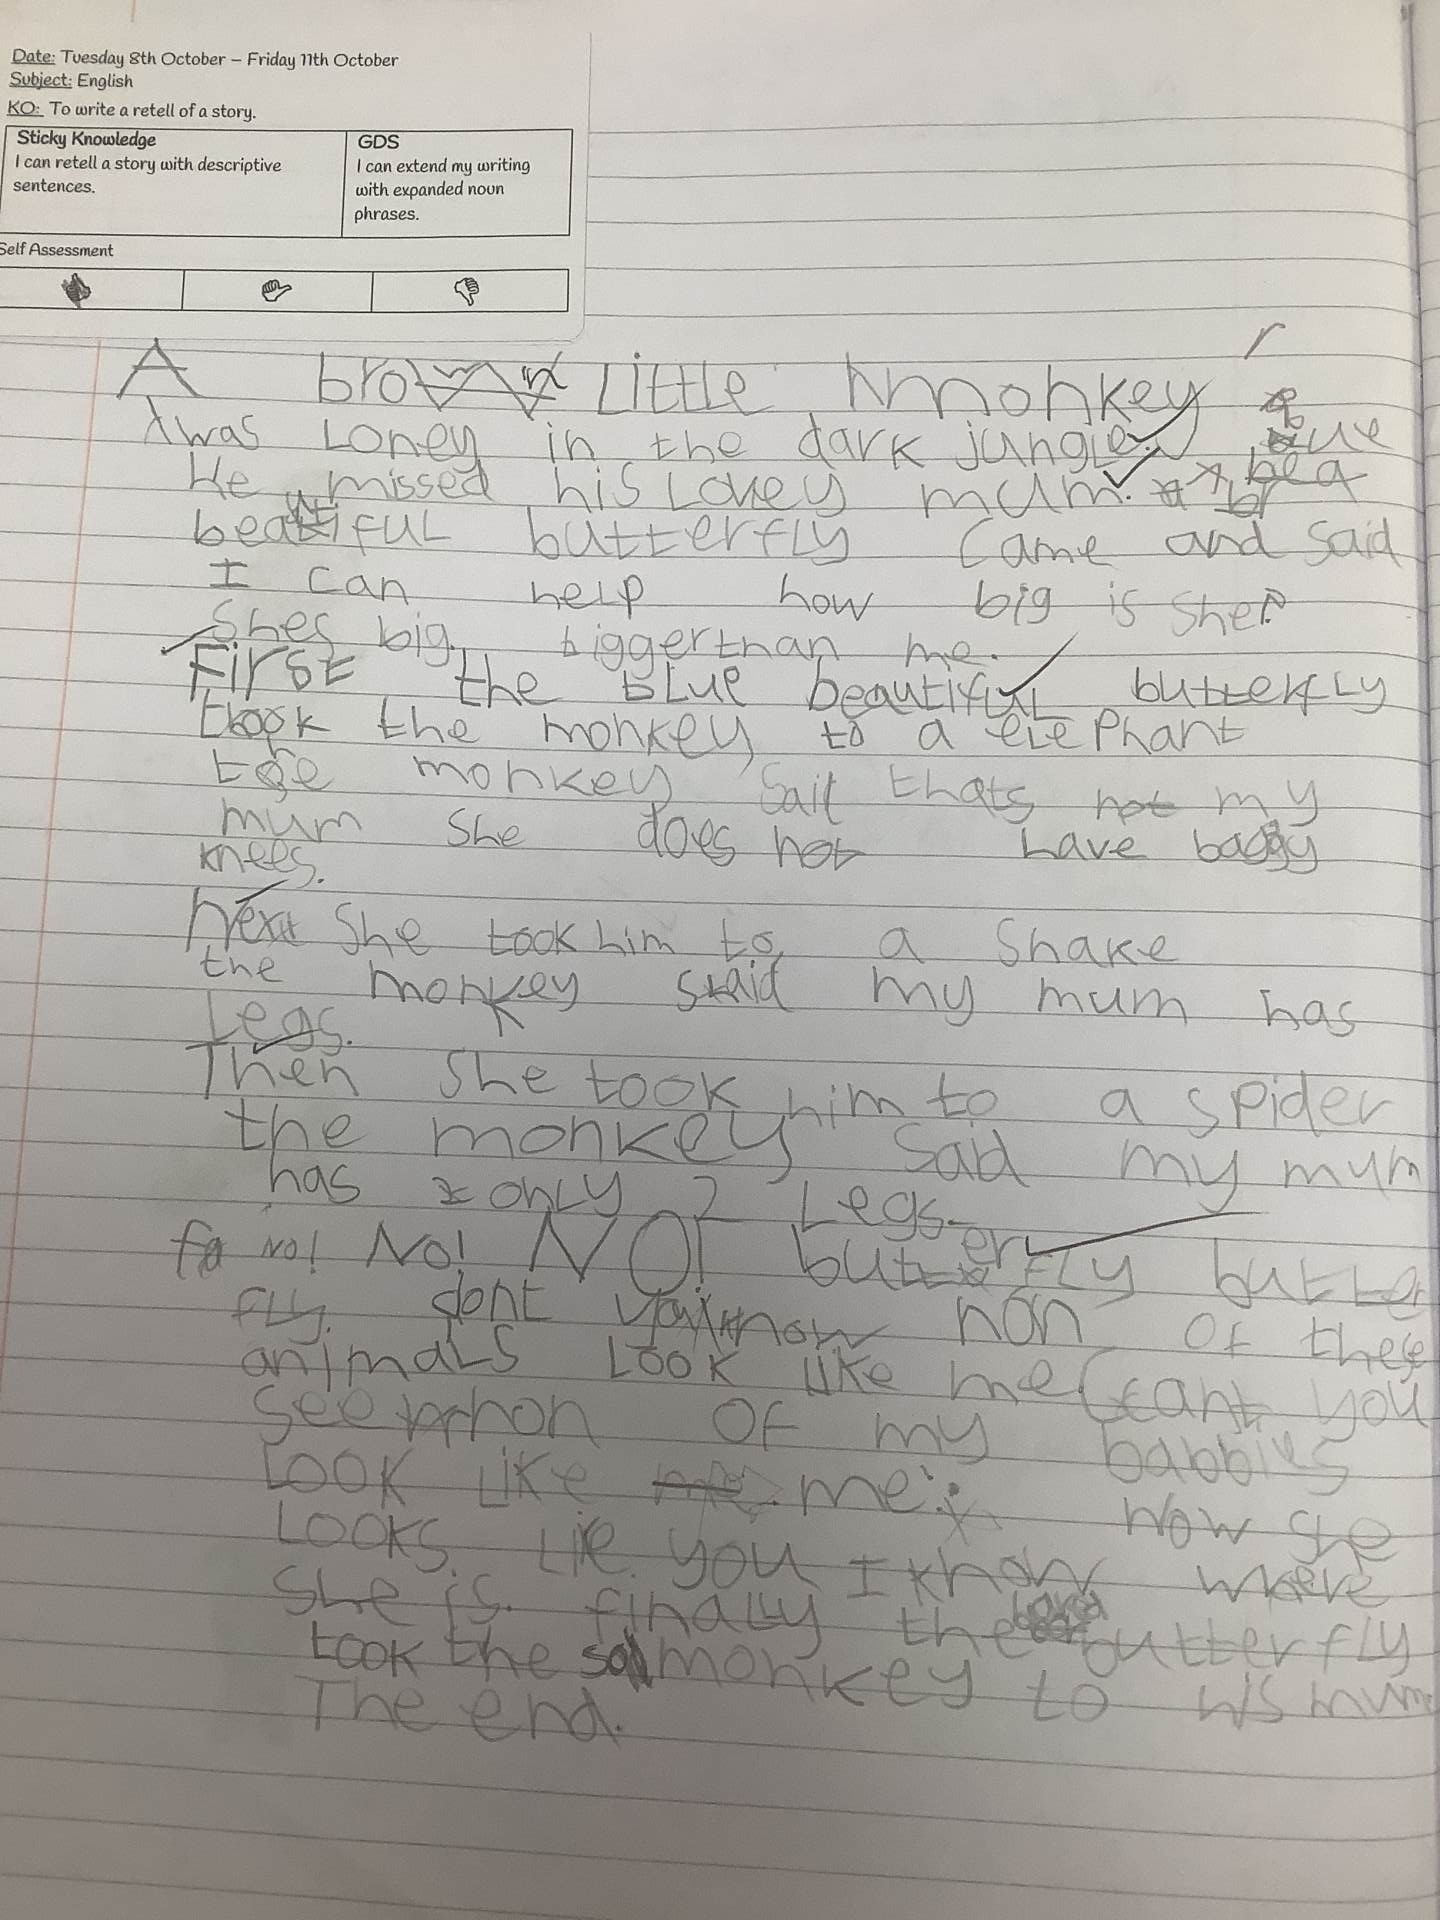 Date: Tuesday 8th October – Friday 11th October
Subject: English
KO: To write a retell of a story.
Sticky Knowledge
I can retell a story with descriptive
sentences.
GDS
I can extend my writing
with expanded noun
phrases.
Self Assessment
A brown Little monkey
was Loney in the dark jungle.
He missed his Lovey mum. a
beautiful butterfly came and said
I can help how big is she?
Shes big. bigger than me.
First the blue beautiful butterfly
took the monkey to a elephant
the monkey Sait thats not my
mum she does not have baggy
knees.
Next She took him to a snake
the monkey said my mum has
Legs.
Then she took him to a spider
the monkey said my mum
has only 2 Legs.
No! No! NO! butterfly butter
fly. dont you know non of these
animals Look Like me cant you
see non of my babbies
Look Like me. Now she
Looks Lik you I know where
she is. finally the butterfly
took the monkey to his mum
The end.